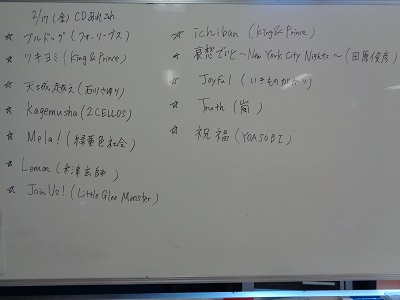 2/17(金) CDあれこれ
☆ ブルドッグ (フォーリーブス)
☆ ツキヨミ (King & Prince)
☆ 天城越え (石川さゆり)
☆ Kagemusha (2CELLOS)
☆ Mela! (緑黄色社会)
☆ Lemon (米津玄師)
☆ Join Us! (Little Glee Monster)
☆ ichiban (King & Prince)
☆ 哀愁でいと～New York City Nights～ (田原俊彦)
☆ Joyful (いきものがかり)
☆ Truth (嵐)
☆ 祝福 (YOASOBI)